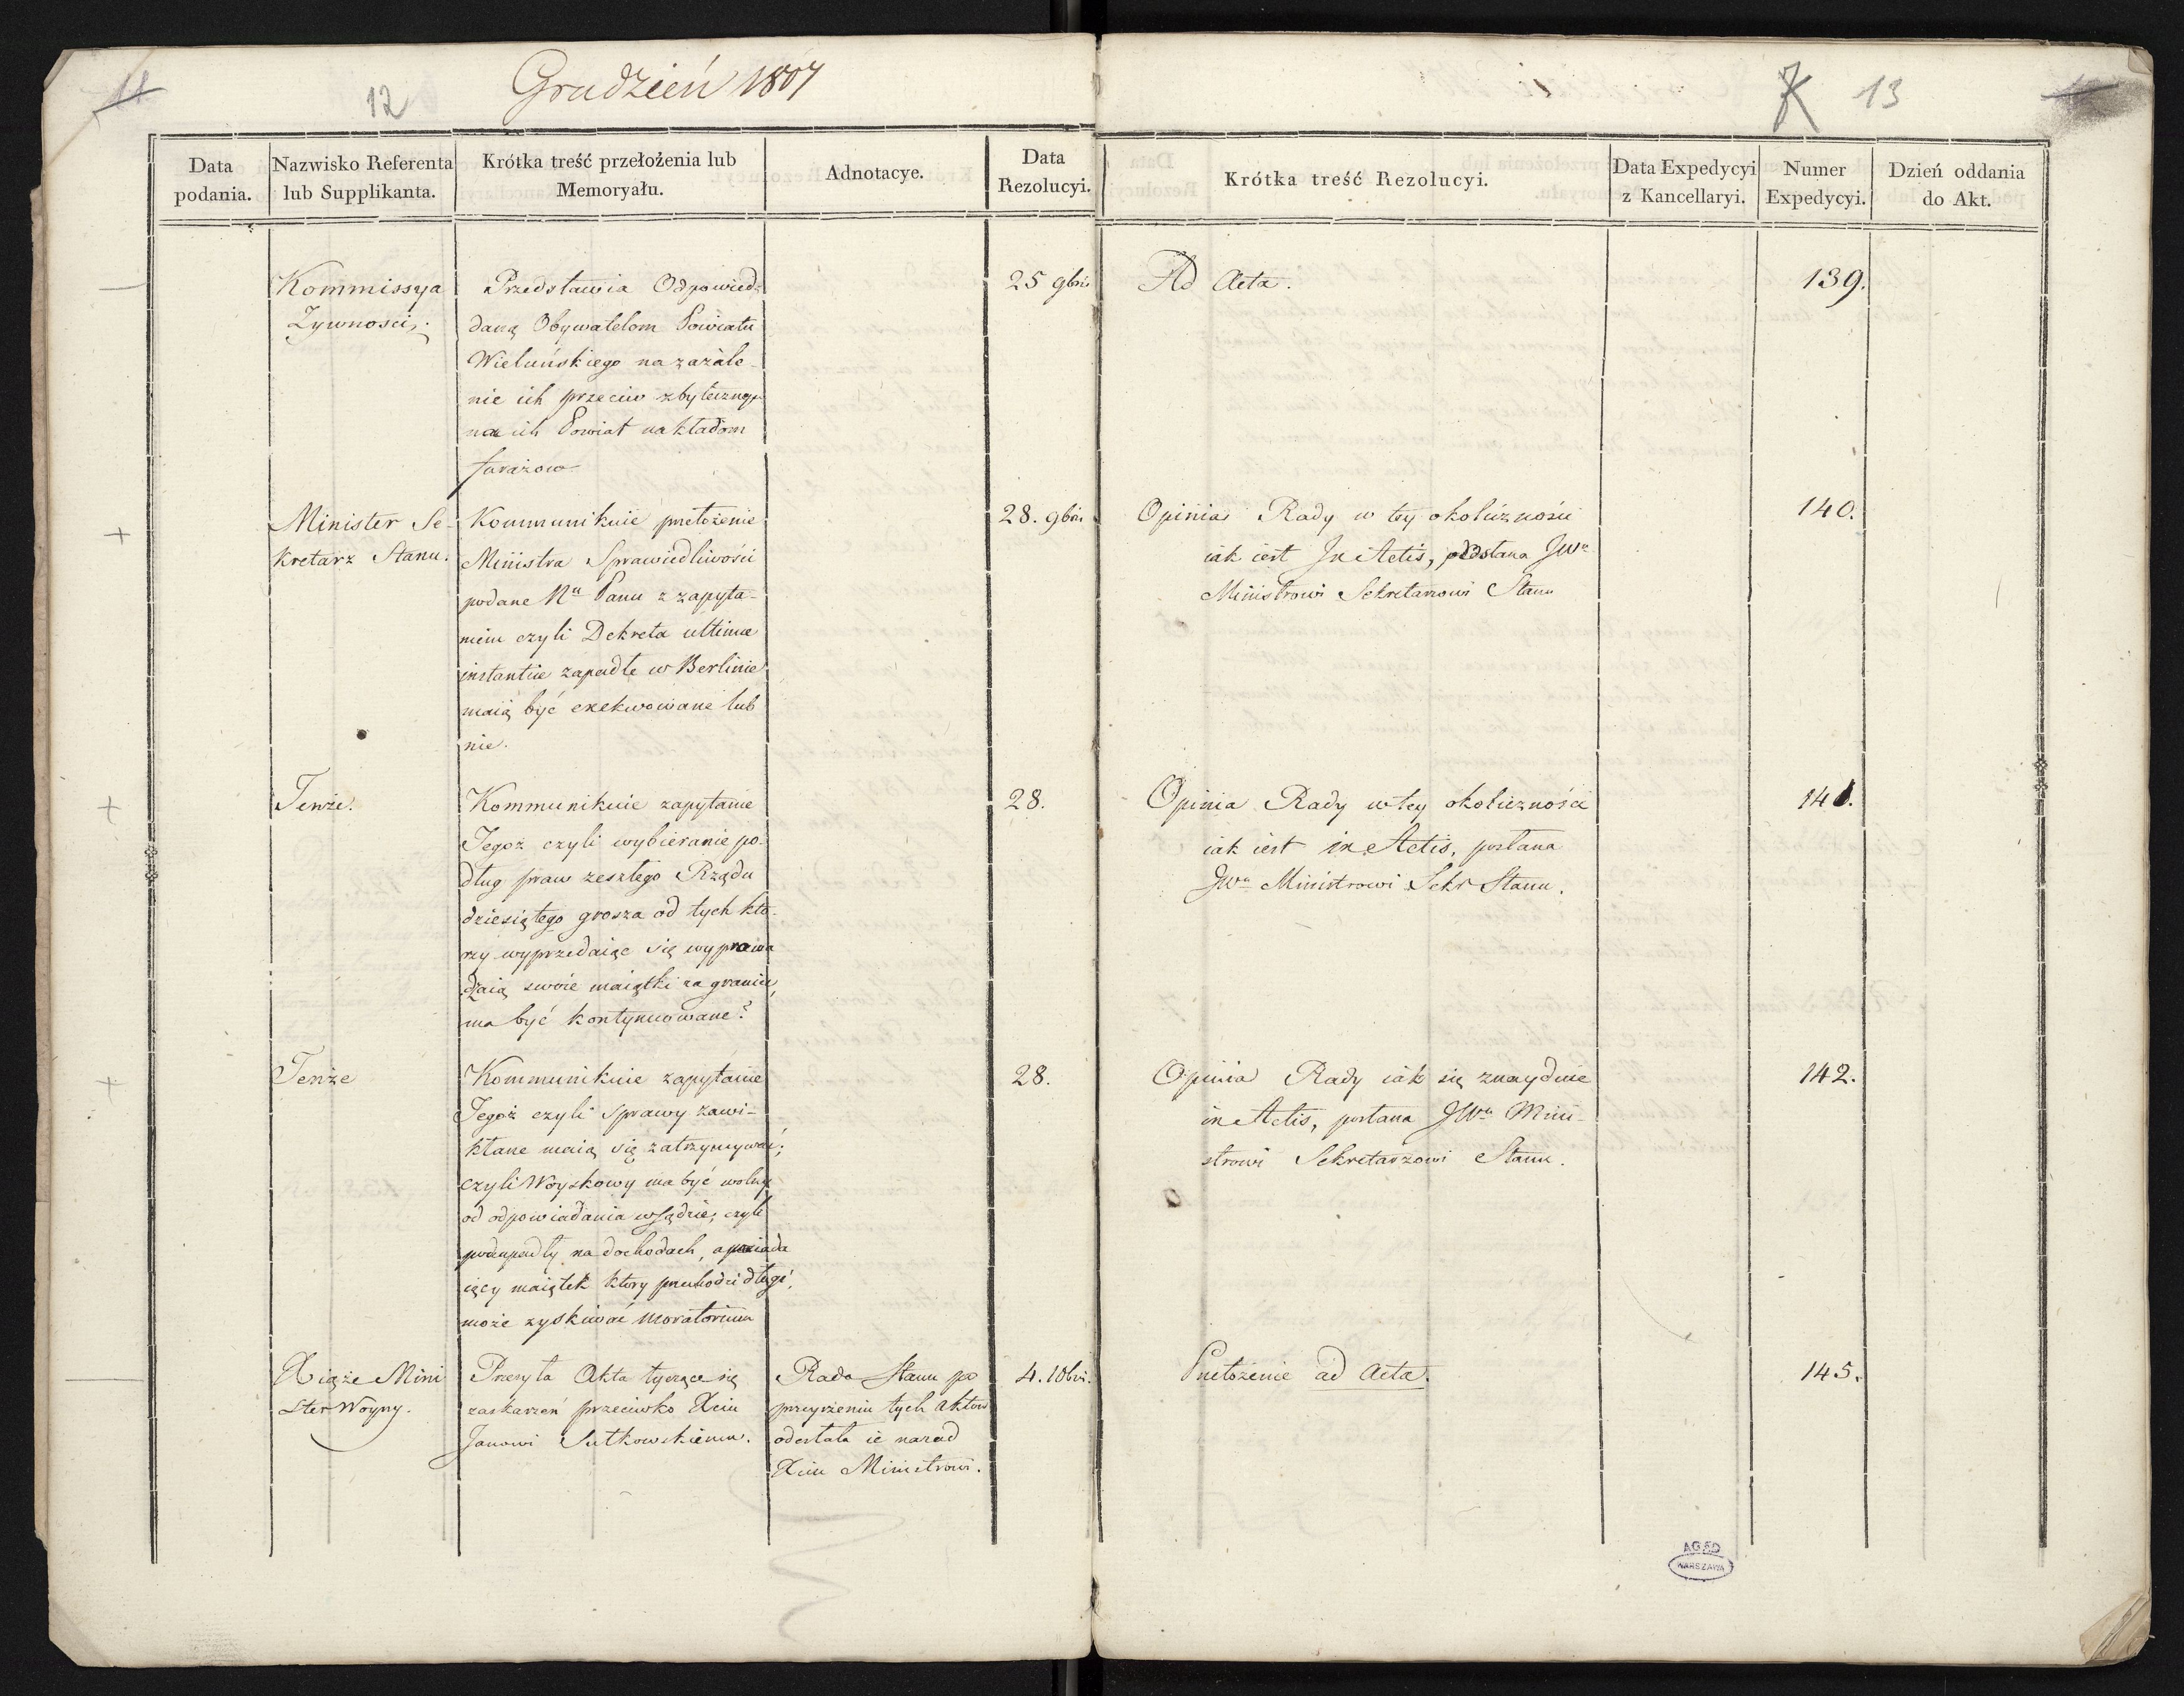 11
12
Grudzień 1807
7
13
Data podania.
Nazwisko Referenta lub Supplikanta.
Krótka treść przełożenia lub Memoryału.
Adnotacye.
Data Rezolucyi.
Krótka treść Rezolucyi.
Data Expedycyi z Kancellaryi.
Numer Expedycyi.
Dzień oddania do Akt.
Kommissya
Zywnosci.
Przedstawia Odpowiedz
daną Obywatelom Powiatu
Wieluńskiego na zażale-
nie ich przeciw zbytecznym
na ich Powiat nakładom
furażow
25 9bris
Ad Acta.
139.
Minister Se-
kretarz Stanu.
Kommunikuie przełożenie
Ministra Sprawiedliwości
podane Nu Panu z zapyta-
niem czyli Dekreta ultimæ
instantiæ zapadłe w Berlinie
maią być exekwowane lub
nie.
28. 9bris
Opinia Rady w tey okoliczności
iak iest In Actis, odesłana JWu
Ministrowi Sekretarzowi Stanu
140.
Tenże.
Kommunikuie zapytanie
Tegoż czyli wybieranie po-
dług praw zeszłego Rządu
dziesiątego grosza od tych kto-
rzy wyprzedaiąc się wyprowa
dzaią swoie maiątki za granicę,
ma być kontynuowane?
28.
Opinia Rady w tey okoliczności
iak iest in Actis, posłana
JWu Ministrowi Sekr Stanu.
141.
Tenże
Kommunikuie zapytanie
Tegoż czyli sprawy zawi-
kłane maią się zatrzymywać;
czyli Woyskowy ma być wolny
od odpowiadania w sądzie; czyli
podupadły na dochodach, a posiada
iący maiątek ktory przechodzi długi,
może zyskiwać moratorium
28.
Opinia Rady iak się znayduie
in Actis, posłana JWu Mini-
strowi Sekretarzowi Stanu.
142.
Xiąże Mini
ster Woyny.
Przesyła Akta tyczące się
zaskarżeń przeciwko Xciu
Janowi Sułkowskiemu.
Rada Stanu po
przeyrzeniu tych aktow
odesłała ie nazad
Xciu Ministrowi.
4. 10bris.
Przełożenie ad Acta.
145.
AGAD
WARSZAWA